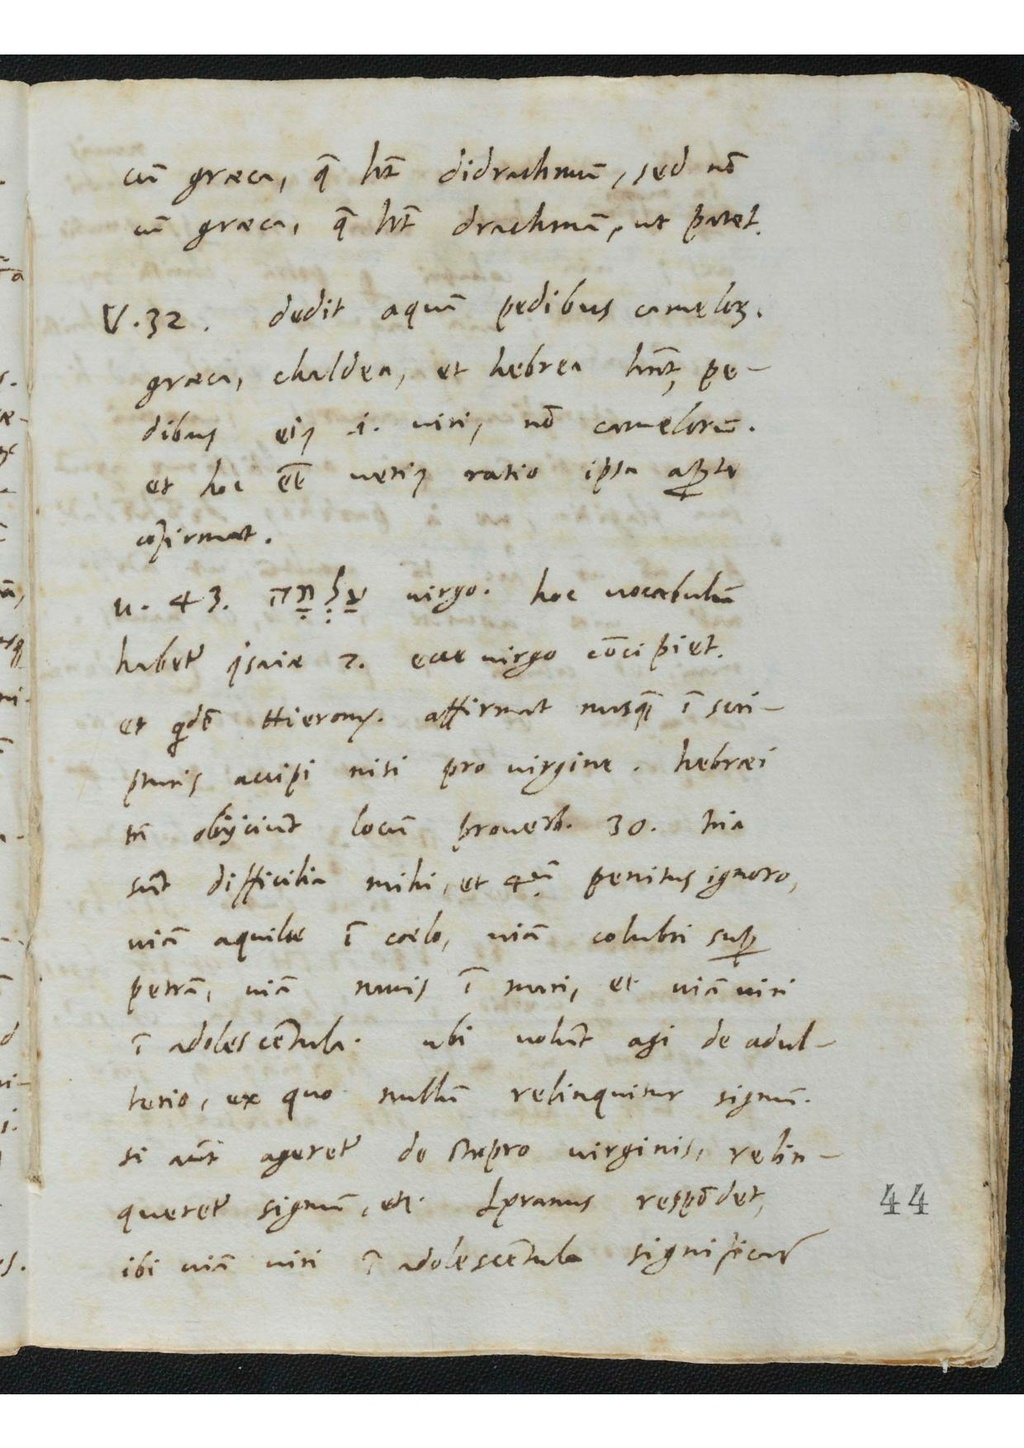 cũ græca, q̃ hẽt didrachmũ, sed nõ
cũ græca, q̃ hẽt drachmũ, ut patet.
V.32. dedit aquã pedibus cameloꝝ.
græca, chaldea, et hebrea hñt, pe-
dibus eiꝯ .i. viri, nõ camelorũ.
et hoc eẽ veriꝯ ratio ipsa apte
cõfirmat.
u. 43. עַלְמָה virgo. hoc vocabulũ
habetr̃ ysaiæ 7. ecce virgo cõcipiet.
et qdẽ Hierony. affirmat nusq̃ ĩ scri-
pturis accipi nisi pro virgine. hebræi
tñ obijciunt locũ proverb. 30. tria
sũt difficilia mihi, et 4ũ penitus ignoro,
viã aquilæ ĩ cœlo, viã colubri sup
petrã, viã navis ĩ mari, et viã viri
ĩ adolescẽtula. ubi volũt agi de adul-
terio, ex quo nullũ relinquitur signũ.
si aũt ageretr̃ de stupro virginis, relin-
queretr̃ signũ, etc. Lyranus respõdet,
ibi viã viri ĩ adolescẽtula significar̃
44